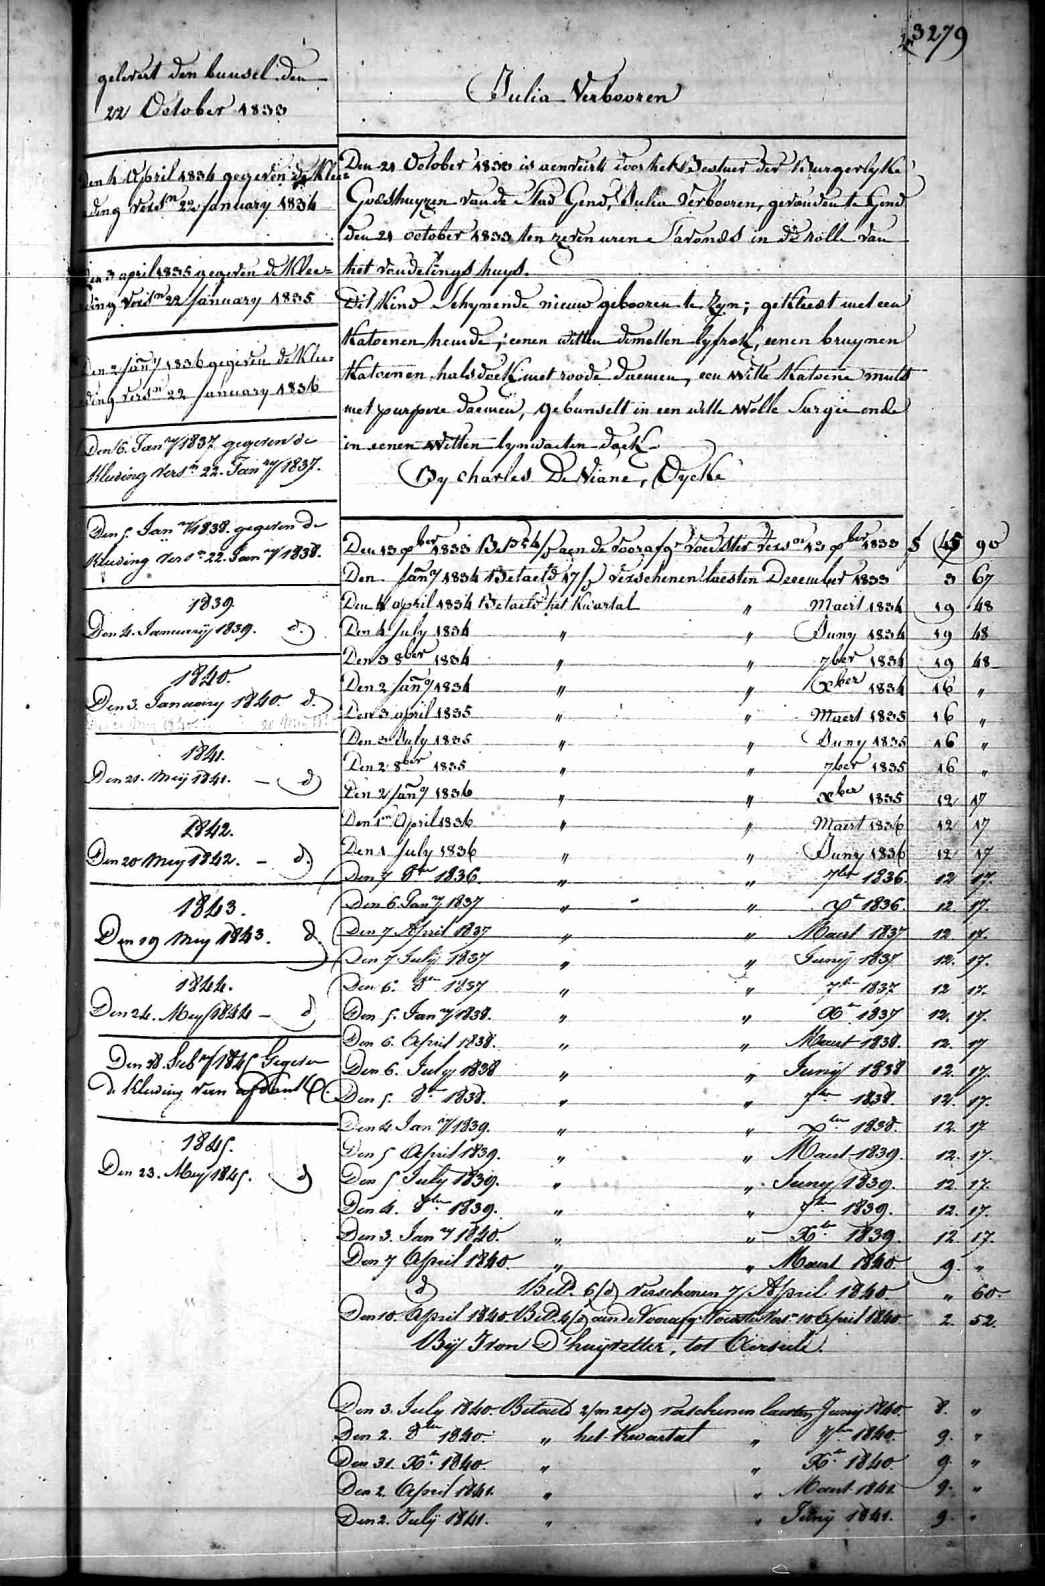 3279
gelevert den bunsel den
22 October 1833
Den 4 April 1834 gegeven de Klee=
ding vers.n 22 January 1834
Den 3 april 1835 gegeven de Klee=
ding vers.n 22 January 1835
Den 2 Jan.y 1836 gegeven de Klee=
ding vers.n 22 January 1836
Den 6. Jan.ry 1837 gegeven de
Kleeding vers.n 22. Jan.ry 1837.
Den 5. Jan.ry 1838. gegeven de
Kleeding vers.n 22. Jan.ry 1838.
1839.
Den 4. January 1839. d.o
1840.
Den 3. January 1840. d.o
1841.
Den 21. Meÿ 1841. — d.o
1842.
Den 20 Meÿ 1842. — d.o
1843.
Den 19 Meÿ 1843. d.o
1844.
Den 24. Meÿ 1844 — d.o
Den 28. Feb.ry 1845 Gegeven
de Kleeding van
1845.
Den 23. Meÿ 1845. d.o
Julia Verbooren
Den 21 October 1833 is aenveirt door het Bestuer der Burgerlyke
Godshuyzen van de Stad Gend, Julia Verbooren, gevonden te Gend
den 21 october 1833 ten zeven uren s'avonds in de rolle van
het vondelings huys.
Dit Kind schynende nieuw gebooren te zyn; gekleed met een
Katoenen hemde, eenen witten demetten lyfrok, eenen bruynen
Katoenen halsdoek met roode daemen, een witte Katoene muts
met purpere daemen, gebunselt in een witte wolle Sargie ende
in eenen witten lynwaeten doek
By Charles De Viane, Eycke
Den 13 9ber 1833 aen de voorafg.e voedster vers.n 13 9ber 1833 f 45 90
Den Jan.y 1834 Betaeld 17/ verschenen laesten December 1833 3 67
Den 4 april 1834 Betaeld het Kwartal " Maert 1834 19 48
Den 4 July 1834 " " Juny 1834 19 48
Den 3 8ber 1834 " " 7ber 1834 19 48
Den 2 Jan.y 1834 " " Xber 1834 16 "
Den 3 april 1835 " " Maert 1835 16 "
Den 3 July 1835 " " Juny 1835 16 "
Den 2 8ber 1835 " " 7ber 1835 16 "
Den 2 Jan.y 1836 " " Xber 1835 12 17
Den 1.en April 1836 " " Maert 1836 12 17
Den 1 July 1836 " " Juny 1836 12 17
Den 7 8.re 1836. " " 7ber 1836. 12 17.
Den 6 Jan.y 1837 " " X.re 1836. 12 17.
Den 7 April 1837 " " Maert 1837 12 17.
Den 7 Julÿ 1837 " " Junÿ 1837 12. 17.
Den 6. 8.re 1837 " " 7.re 1837. 12 17.
Den 5. Jan.ry 1838. " " X.re 1837 12. 17.
Den 6. April 1838. " " Maert 1838. 12. 17
Den 6. July 1838 " " Junÿ 1838 12. 17.
Den 5. 8.re 1838. " " 7.re 1838. 12. 17.
Den 4 Jan.ry 1839. " " X.re 1838. 12. 17
Den 5 April 1839. " " Maert 1839. 12. 17.
Den 5 July 1839. " " Juny 1839. 12 17.
Den 4. 8.re 1839. " " 7.re 1839. 12. 17.
Den 3. Jan.ry 1840. " " X.re 1839. 12 17.
Den 7 April 1840. " " Maert 1840. 9. "
d.o Bet.d 6/d verschenen 7 April 1840. " 60.
Den 10. April 1840. Bet.d aen de Voorafg.e Voedster vers.n 10 April 1840. 2. 52.
Bÿ Ivon D'huÿvetter, tot Aerseele.
Den 3. July 1840. Betaeld 2/m 20/d verschenen laesten Juny 1840. 8. "
Den 2. 8.re 1840. " het Kwartal " 7.re 1840. 9. "
Den 31. X.re 1840 " " X.re 1840 9. "
Den 2. April 1841. " " Maert 1841 9. "
Den 2. Julÿ 1841. " " Junÿ 1841. 9. "